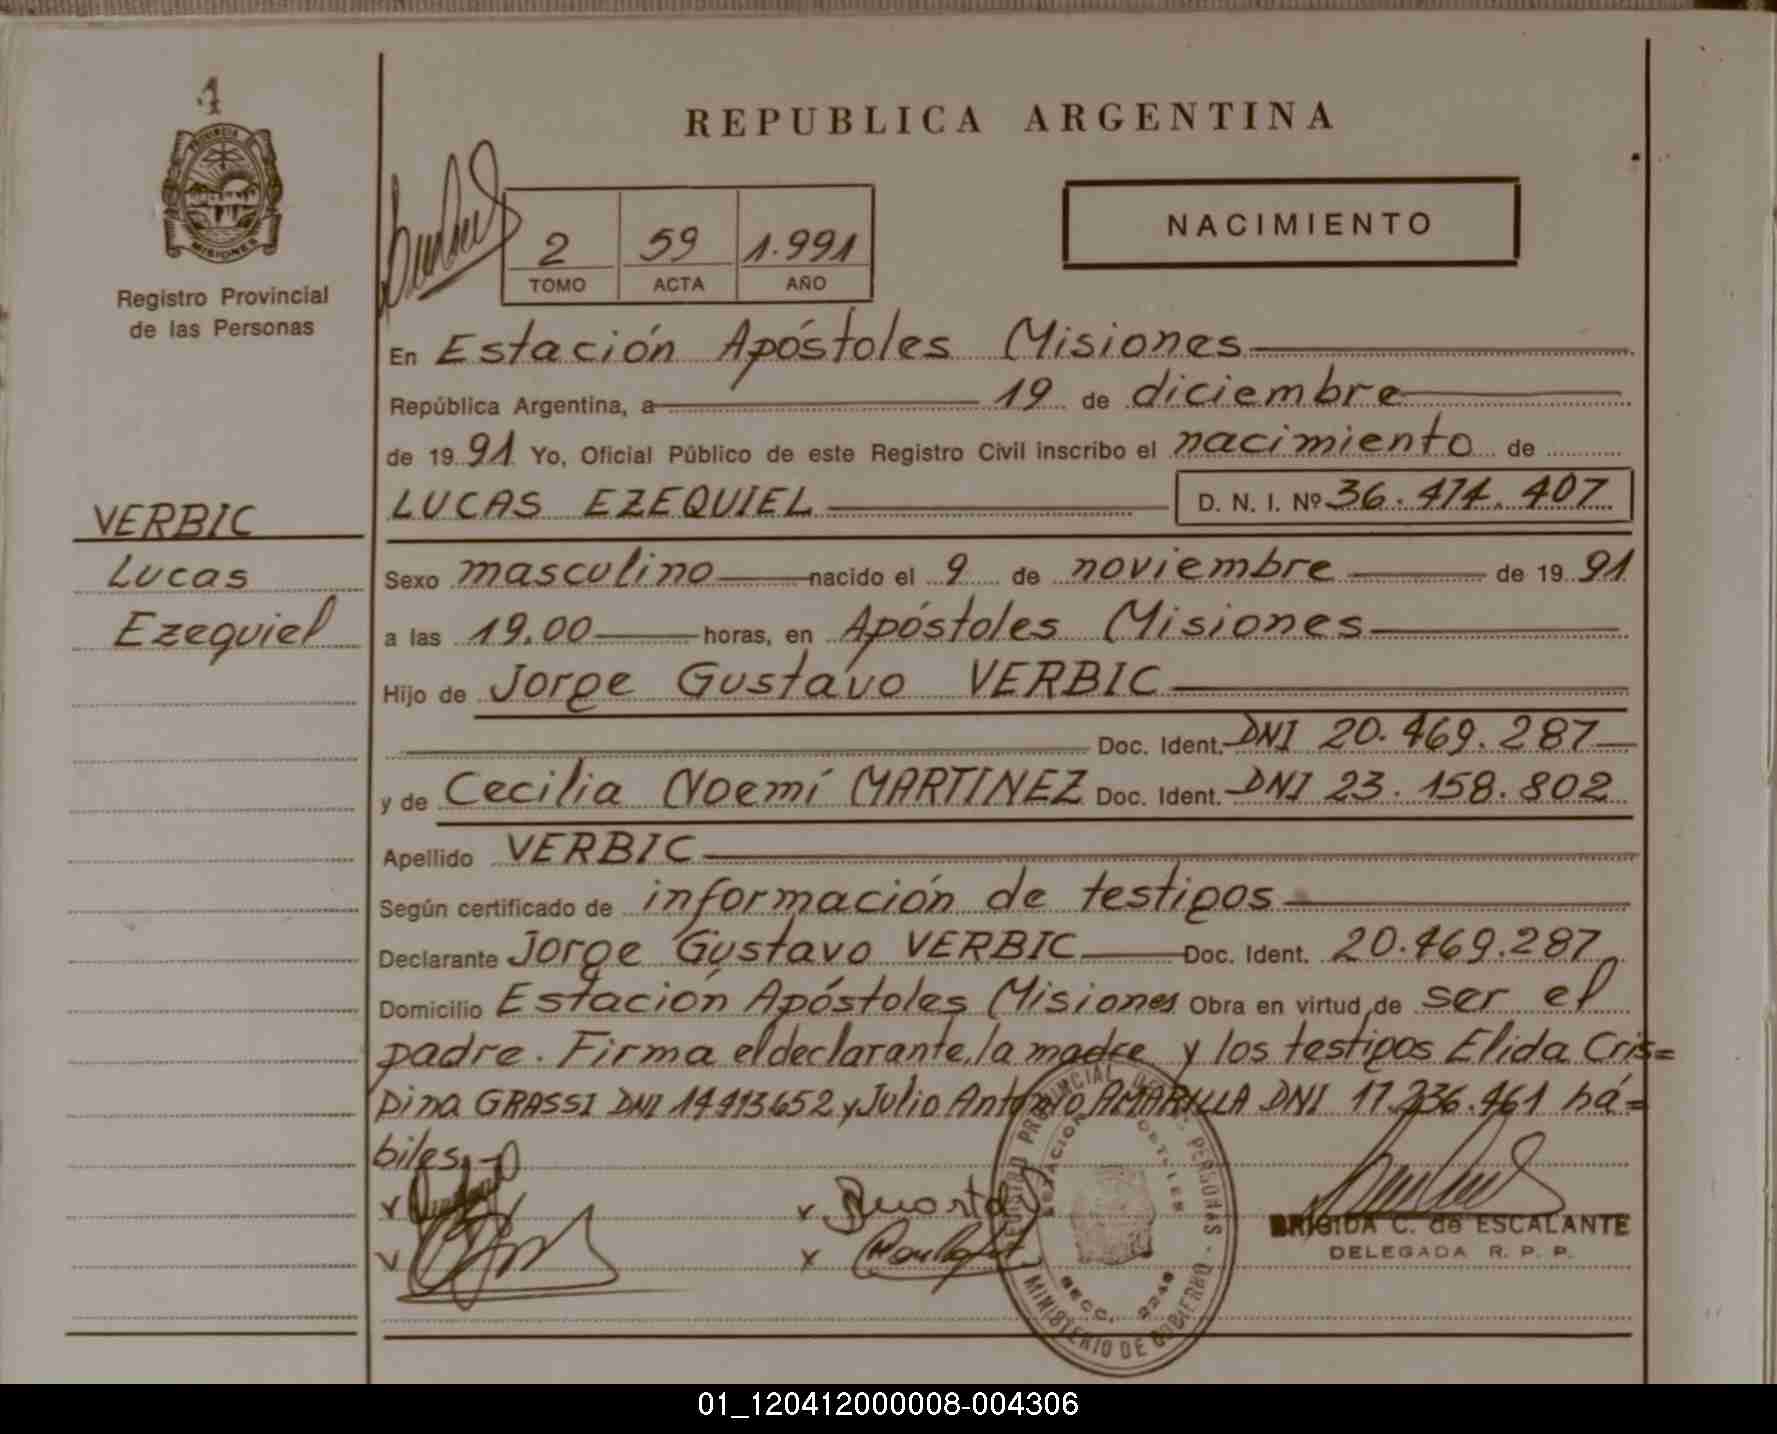 1
PROVINCIA DE
MISIONES
Registro Provincial
de las Personas
VERBIC
Lucas
Ezequiel
REPUBLICA ARGENTINA
NACIMIENTO
2 59 1.991
TOMO ACTA AÑO
En Estación Apóstoles Misiones
República Argentina, a 19 de diciembre
de 1991 Yo, Oficial Público de este Registro Civil inscribo el nacimiento de
LUCAS EZEQUIEL D. N. I. Nº 36.474.407
Sexo masculino nacido el 9 de noviembre de 1991
a las 19.00 horas, en Apóstoles Misiones
Hijo de Jorge Gustavo VERBIC
Doc. Ident. DNI 20.469.287
y de Cecilia Noemí MARTINEZ Doc. Ident. DNI 23.158.802
Apellido VERBIC
Según certificado de información de testigos
Declarante Jorge Gustavo VERBIC Doc. Ident. 20.469.287
Domicilio Estación Apóstoles Misiones Obra en virtud de ser el
padre. Firma el declarante, la madre y los testigos Elida Cris=
pina GRASSI DNI 14.413.652 y Julio Antonio AMARILLA DNI 17.236.461 há=
biles.-
REGISTRO PROVINCIAL DE LAS PERSONAS - MINISTERIO DE GOBIERNO -
ESTACION APOSTOLES
SECC. 2248
BRIGIDA C. de ESCALANTE
DELEGADA R. P. P.
01_120412000008-004306